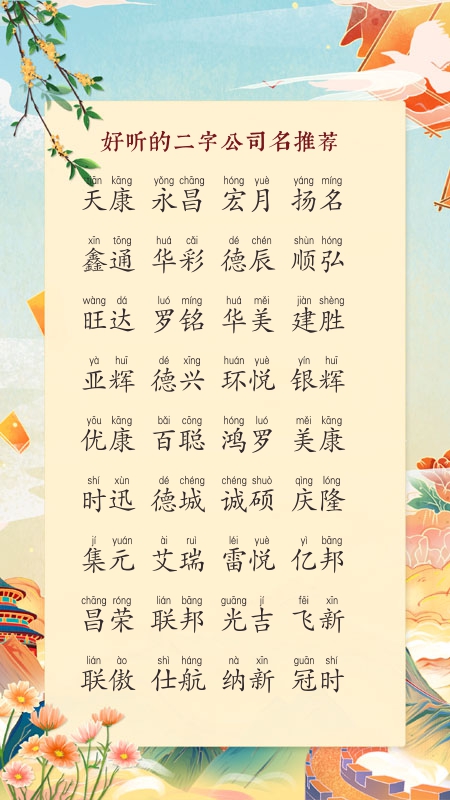 好听的二字公司名推荐
tiān kāng yǒng chāng hóng yuè yáng míng
天康 永昌 宏月 扬名
xīn tōng huá cǎi dé chén shùn hóng
鑫通 华彩 德辰 顺弘
wàng dá luó míng huá měi jiàn shèng
旺达 罗铭 华美 建胜
yà huī dé xīng huán yuè yín huī
亚辉 德兴 环悦 银辉
yōu kāng bǎi cōng hóng luó měi kāng
优康 百聪 鸿罗 美康
shí xùn dé chéng chéng shuò qìng lóng
时迅 德城 诚硕 庆隆
jí yuán ài ruì léi yuè yì bāng
集元 艾瑞 雷悦 亿邦
chāng róng lián bāng guāng jí fēi xīn
昌荣 联邦 光吉 飞新
lián ào shì háng nà xīn guān shí
联傲 仕航 纳新 冠时